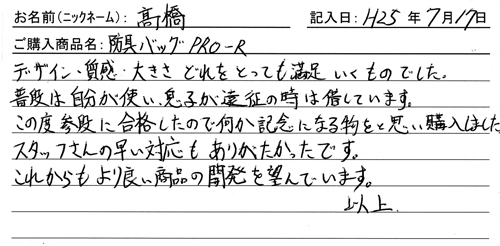 お名前(ニックネーム): 高橋 記入日: H25 年 7月 17日
ご購入商品名: 防具バッグ PRO-R
デザイン・質感・大きさ どれをとっても満足 いくものでした。
普段は自分が使い、息子が遠征の時は借しています。
この度参段に合格したので何か記念になる物をと思い購入しました
スタッフさんの早い対応も ありがたかったです。
これからも より良い商品の開発を望んでいます。
以上.